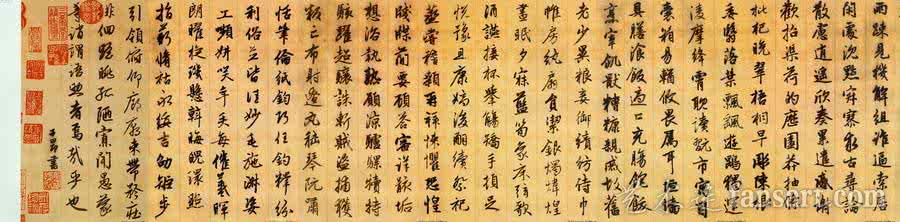 兩疏見機解組誰逼索居
閑處沉默寂寥求古尋論
散慮逍遙欣奏累遣慼謝
歡招渠荷的歷園莽抽條
枇杷晚翠梧桐早彫陳根
委翳落葉飄颻遊鵾獨運
凌摩絳霄耽讀翫市寓目
囊箱易輶攸畏屬耳垣墻
具膳飡飯適口充腸飽飫
烹宰飢猒糟糠親戚故舊
老少異粮妾御績紡侍巾
帷房紈扇員潔銀燭煒煌
晝眠夕寐藍笋象床弦歌
酒讌接杯舉觴矯手頓足
悅豫且康嫡後嗣續祭祀
蒸嘗稽顙再拜悚懼恐惶
牋牒簡要顧答審詳骸垢
想浴執熱願涼驢騾犢特
駭躍超驤誅斬賊盜捕獲
叛亡布射遼丸嵇琴阮嘯
恬筆倫紙鈞巧任釣釋紛
利俗並皆佳妙毛施淑姿
工嚬妍笑年矢每催羲暉
朗曜琁璣懸斡晦魄環照
指薪脩祜永綏吉劭矩步
引領俯仰廊廟束帶矜莊
徘徊瞻眺孤陋寡聞愚蒙
等誚謂語助者焉哉乎也
子昂書